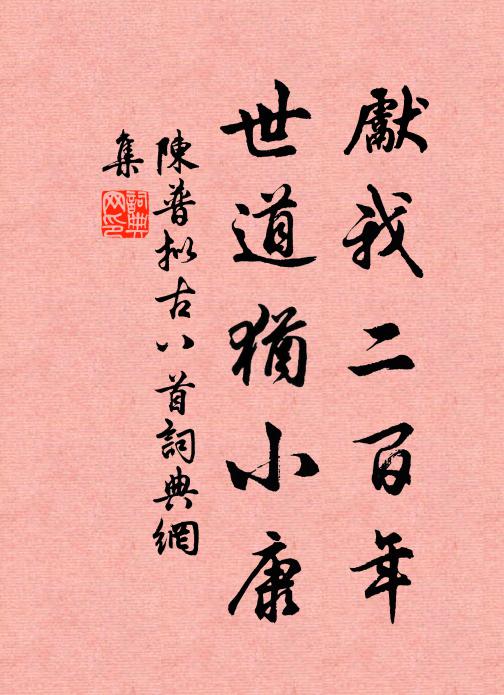 獻我二百年
世道猶小康
陳普擬古八首詞典網
集
詞典
网印